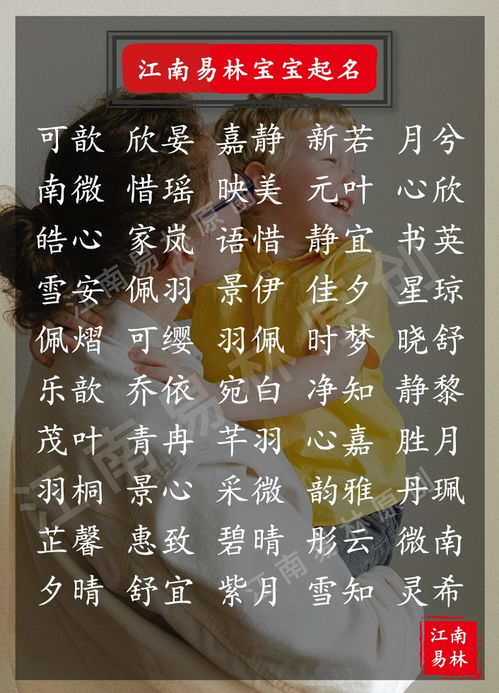 江南易林宝宝起名
可歆 欣晏 嘉静 新若 月兮
南微 惜瑶 映美 元叶 心欣
皓心 家岚 语惜 静宜 书英
雪安 佩羽 景伊 佳夕 星琼
佩熠 可缨 羽佩 时梦 晓舒
乐歆 乔依 宛白 净知 静黎
茂叶 青冉 芊羽 心嘉 胜月
羽桐 景心 采微 韵雅 丹珮
芷馨 惠致 碧晴 彤云 微南
夕晴 舒宜 紫月 雪知 灵希
江南
易林
江南易林原创
江南易林原创
江南易林原创